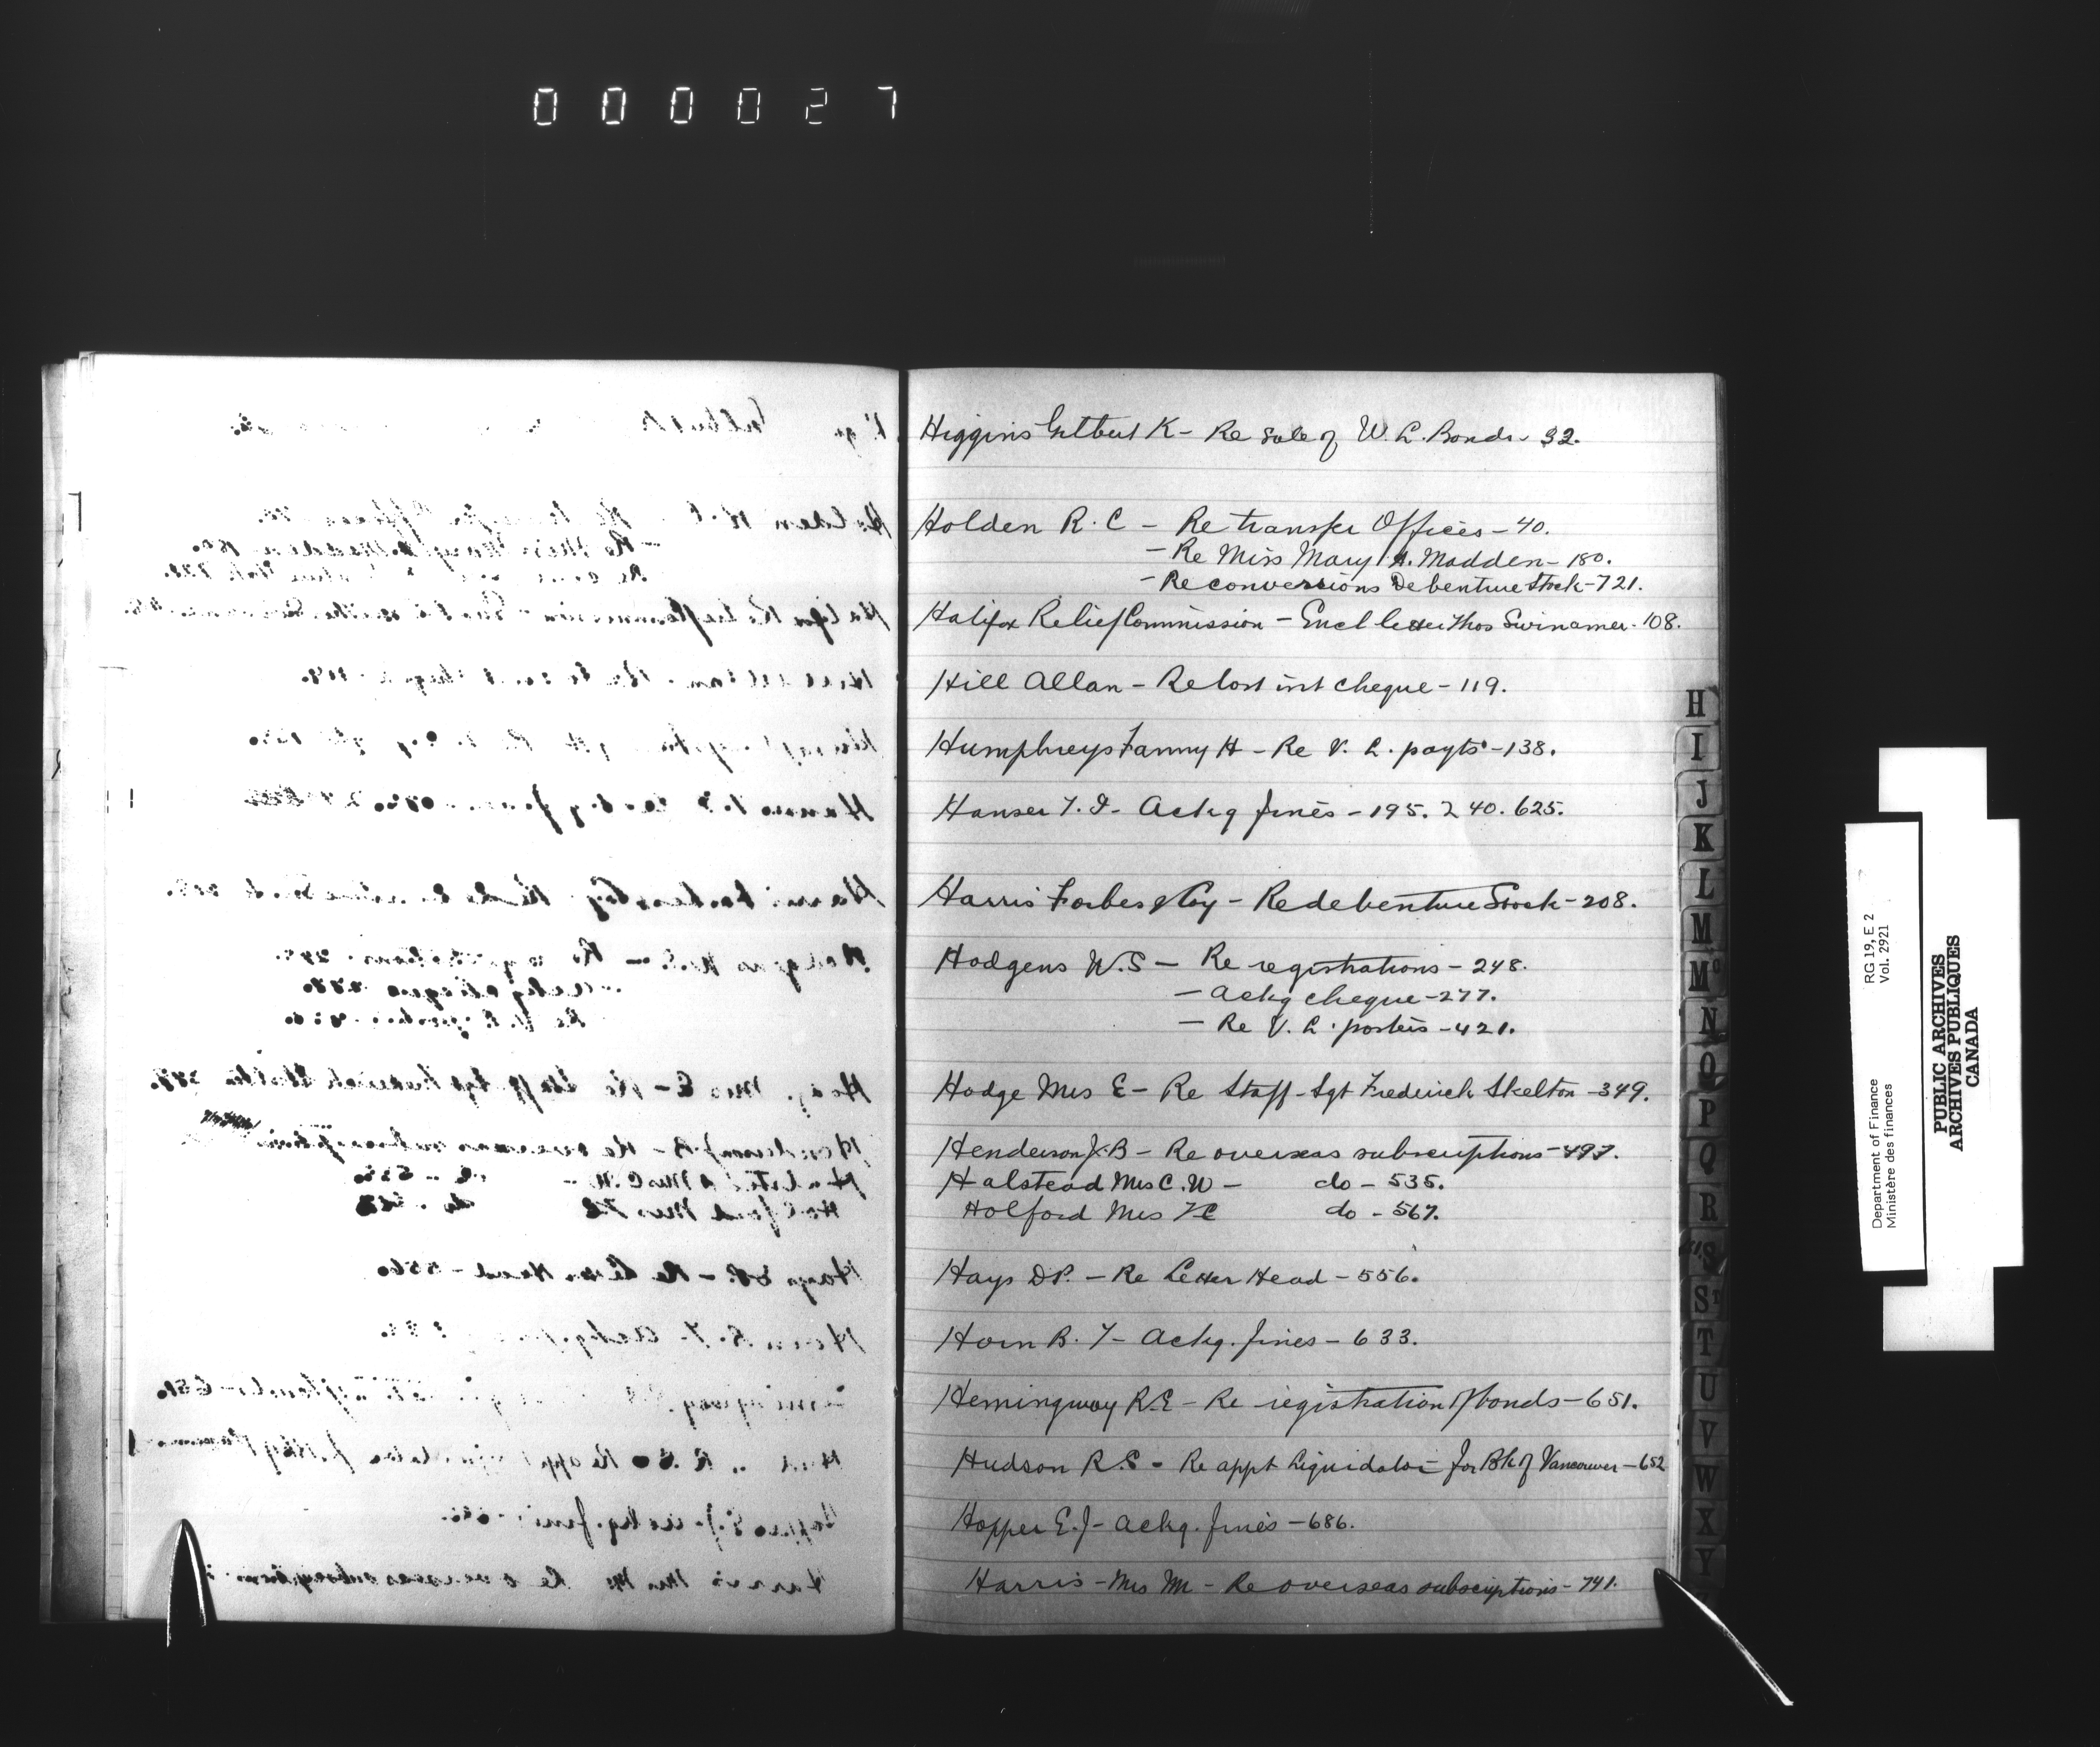 000027
Higgins Gilbert K - Re sale of W. L. Bonds - 32.
Holden R. C - Re transfer Offices - 40.
- Re Miss Mary A. Madden - 180.
- Re conversions Debenture Stock - 721.
Halifax Relief Commission - Encl letter Thos Swinamer - 108.
Hill Allan - Re lost int cheque - 119.
Humphreys Fanny H - Re V. L. payts - 138.
Hanser T. I - Ackg fines - 195. 240. 625.
Harris Forbes & Coy - Re debenture Stock - 208.
Hodgens W. S - Re registrations - 248.
- Ackg cheque - 277.
- Re V. L. posters - 421.
Hodge Mrs E - Re Staff - Sgt Frederick Skelton - 349.
Henderson J. B - Re overseas subscriptions - 497.
Halstead Mrs C. W - do - 535.
Holford Mrs do - 567.
Hays D P. - Re Letter Head - 556.
Horn B. T - Ackg. fines - 633.
Hemingway R. E - Re registration of bonds - 651.
Hudson R. S - Re appt Liquidator for Bk of Vancouver - 652
Hopper E. J - Ackg. fines - 686.
Harris - Mrs M - Re overseas subscriptions - 741.
H
I
J
K
L
M
Mc
N
O
P
Q
R
S
ST
T
U
V
W
X
Y
Department of Finance RG 19, E 2
Ministère des finances Vol. 2921
PUBLIC ARCHIVES
ARCHIVES PUBLIQUES
CANADA